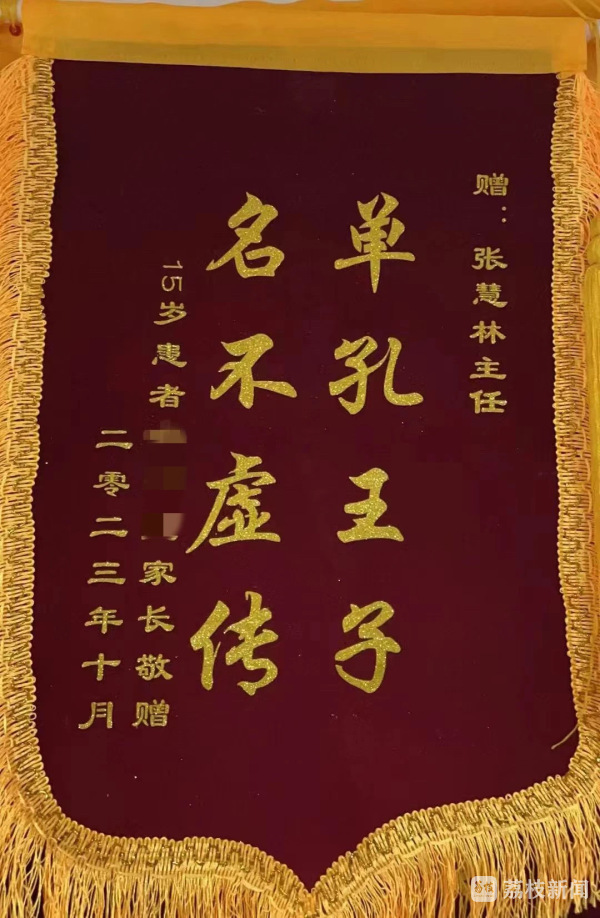 赠：张慧林主任
单孔王子
名不虚传
15岁患者 家长敬赠
二零二三年十月
荔枝新闻